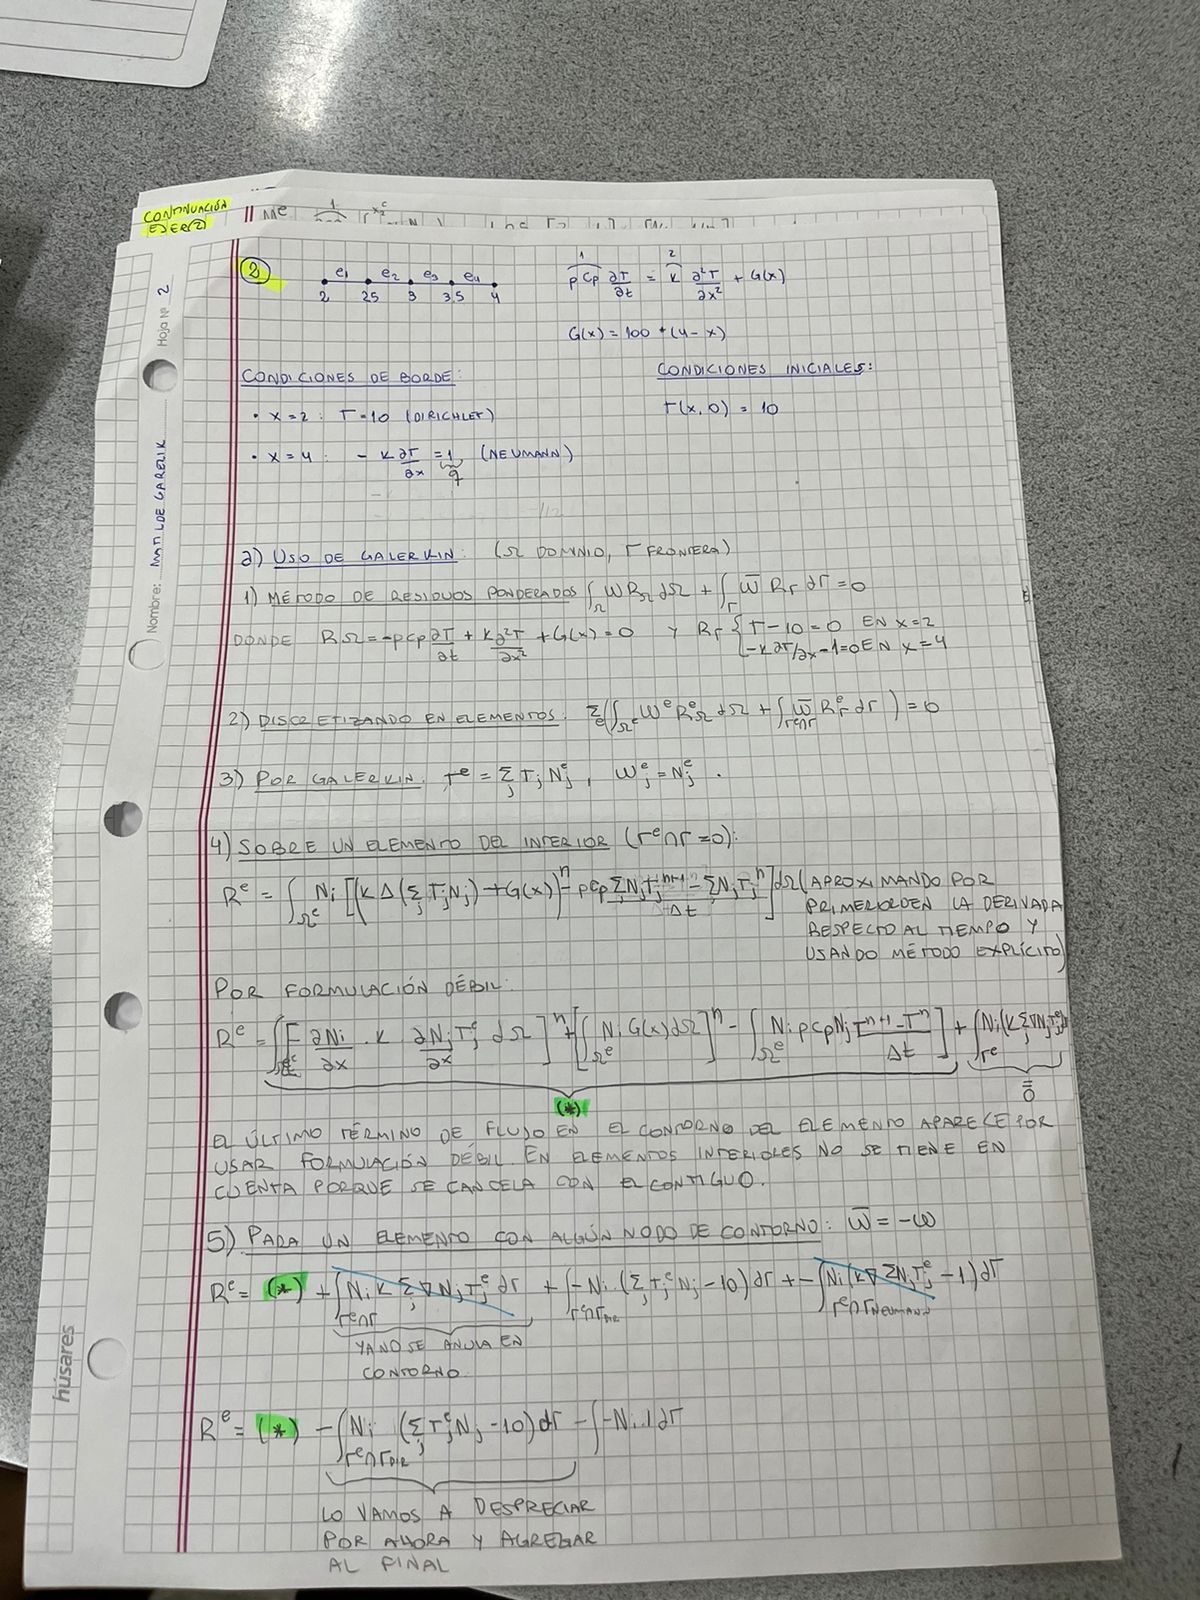 CONTINUACIÓN
EJER(2)
Hoja Nº 2
Nombre: MATILDE GAREZIK
húsares
2
e1 e2 e3 e4
2 25 3 3,5 4
1 2
ρCp ∂T/∂t = k ∂²T/∂x² + G(x)
G(x) = 100 * (4 - x)
CONDICIONES DE BORDE:
• x = 2 : T = 10 (DIRICHLET)
• x = 4 : - k ∂T/∂x = 1 (NEUMANN)
q
CONDICIONES INICIALES:
T(x, 0) = 10
a) USO DE GALERKIN: (Ω DOMINIO, Γ FRONTERA)
1) MÉTODO DE RESIDUOS PONDERADOS ∫Ω W RΩ dΩ + ∫Γ W̅ RΓ dΓ = 0
DONDE RΩ = -ρCp ∂T/∂t + k ∂²T/∂x² + G(x) = 0 Y RΓ { T - 10 = 0 EN x = 2
-k ∂T/∂x - 1 = 0 EN x = 4
2) DISCRETIZANDO EN ELEMENTOS: Σe (∫Ωᵉ Wᵉ RᵉΩ dΩ + ∫Γᵉ∩Γ W̅ RᵉΓ dΓ) = 0
3) POR GALERKIN: Tᵉ = Σj Tj Njᵉ , Wjᵉ = Njᵉ .
4) SOBRE UN ELEMENTO DEL INTERIOR (Γᵉ∩Γ = 0):
Rᵉ = ∫Ωᵉ Ni [(k Δ(Σj Tj Nj) + G(x))ⁿ - ρCp (Σj Nj Tjⁿ⁺¹ - Σj Nj Tjⁿ)/Δt] dΩ (APROXIMANDO POR
PRIMER ORDEN LA DERIVADA
RESPECTO AL TIEMPO Y
USANDO MÉTODO EXPLÍCITO)
POR FORMULACIÓN DÉBIL:
Rᵉ = ∫Ωᵉ [- ∂Ni/∂x . k ∂Nj/∂x Tjᵉ dΩ]ⁿ + [∫Ωᵉ Ni G(x) dΩ]ⁿ - ∫Ωᵉ Ni ρCp Nj (Tⁿ⁺¹ - Tⁿ)/Δt] + ∫Γᵉ Ni (k Σj ∇Nj Tjᵉ)
(*)
= 0
EL ÚLTIMO TÉRMINO DE FLUJO EN EL CONTORNO DEL ELEMENTO APARECE POR
USAR FORMULACIÓN DÉBIL. EN ELEMENTOS INTERIORES NO SE TIENE EN
CUENTA PORQUE SE CANCELA CON EL CONTIGUO.
5) PARA UN ELEMENTO CON ALGÚN NODO DE CONTORNO: W̅ = -W
Rᵉ = (*) + ∫Γᵉ∩Γ Ni k Σj ∇Nj Tjᵉ dΓ + ∫Γᵉ∩ΓDIR - Ni . (Σj Tjᵉ Nj - 10) dΓ + - ∫Γᵉ∩ΓNEUMANN Ni (k ∇ Σ Nj Tjᵉ - 1) dΓ
YA NO SE ANULA EN
CONTORNO
Rᵉ = (*) - ∫Γᵉ∩ΓDIR Ni (Σj Tjᵉ Nj - 10) dΓ - ∫ -Ni . 1 dΓ
LO VAMOS A DESPRECIAR
POR AHORA Y AGREGAR
AL FINAL